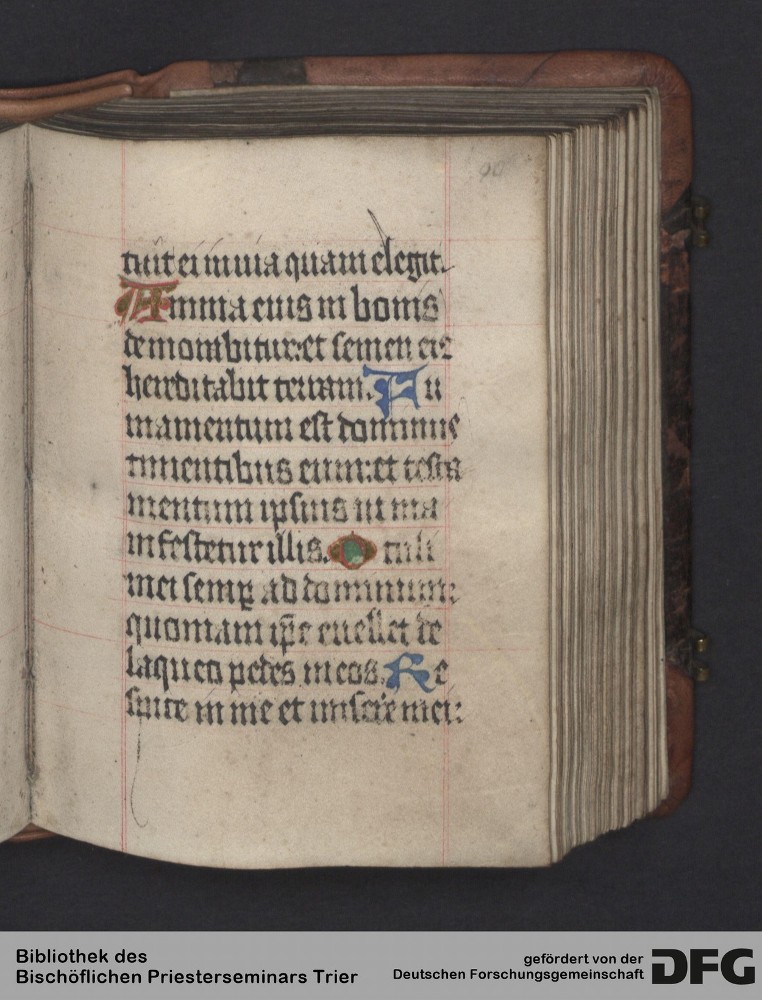 90
tuit ei in uia quam elegit.
Anima eius in bonis
demorabitur: et semen eiꝰ
hereditabit terram. Fir
mamentum est dominus
timentibus eum: et testa
mentum ipsius ut ma
infestetur illis. Oculi
mei semꝑ ad dominum:
quoniam ip̄e euellet de
laqueo pedes meos. Re
spice in me et miserere mei:
Bibliothek des
Bischöflichen Priesterseminars Trier
gefördert von der
Deutschen Forschungsgemeinschaft
DFG